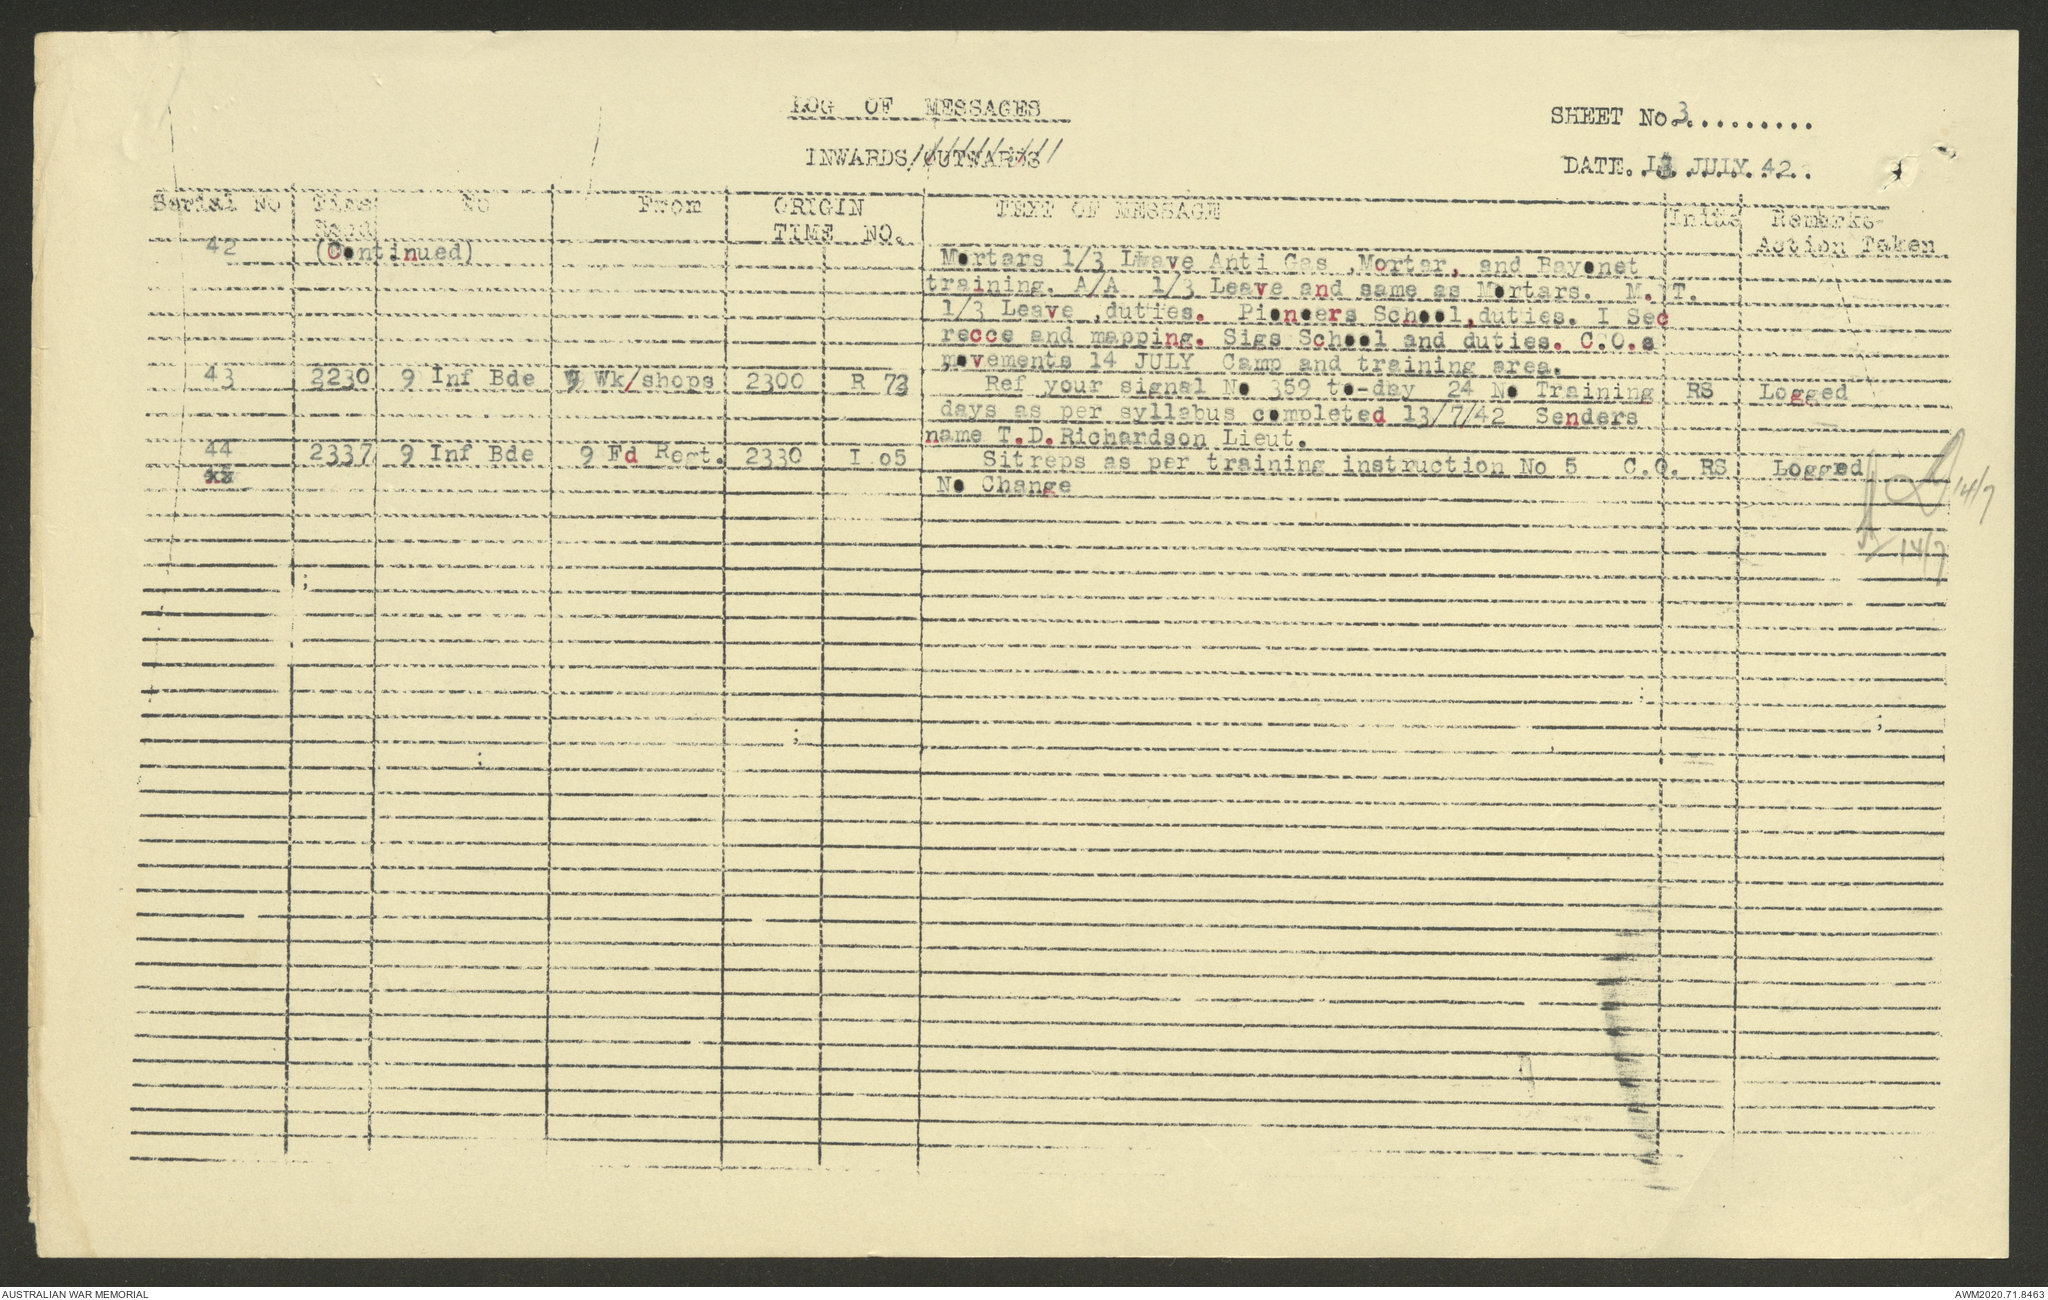 LOG OF MESSAGES
SHEET No 3..........
INWARDS/OUTWARDS
DATE. 13 JULY 42.
Serial No Time No From ORIGIN TEXT OF MESSAGE Inits Remarks-
TIME NO. Action Taken
42 (Continued) Mortars 1/3 Lwave Anti Gas ,Mortar, and Bayonet
training. A/A 1/3 Leave and same as Mortars. M. T.
1/3 Leave ,duties. Pioneers School,duties. I Sec
recce and mapping. Sigs School and duties. C.O.s
movements 14 JULY Camp and training area.
43 2230 9 Inf Bde 9 Wk/shops 2300 R 73 Ref your signal No 359 to-day 24 No Training RS Logged
days as per syllabus completed 13/7/42 Senders
name T.D.Richardson Lieut.
44 2337 9 Inf Bde 9 Fd Regt. 2330 I 05 Sitreps as per training instruction No 5 C.O. RS Logged
No Change
14/7
14/7
AUSTRALIAN WAR MEMORIAL
AWM2020.71.8463